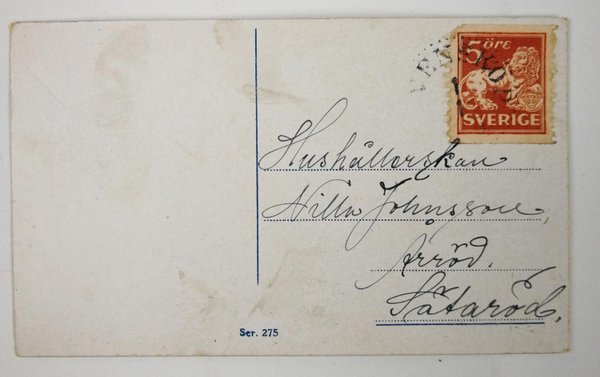 5 ÖRE
SVERIGE
Hushållerskan
Nilla Johnsson,
Arröd.
Sätaröd,
Ser. 275